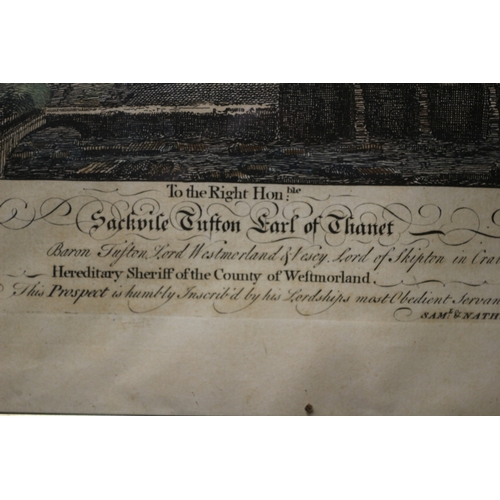 To the Right Hon:ble
Sackvile Tufton Earl of Thanet
Baron Tufton, Lord Westmorland & Vescy, Lord of Skipton in Crav
Hereditary Sheriff of the County of Westmorland.
This Prospect is humbly Inscrib'd by his Lordships most Obedient Servan
SAM.L & NATH